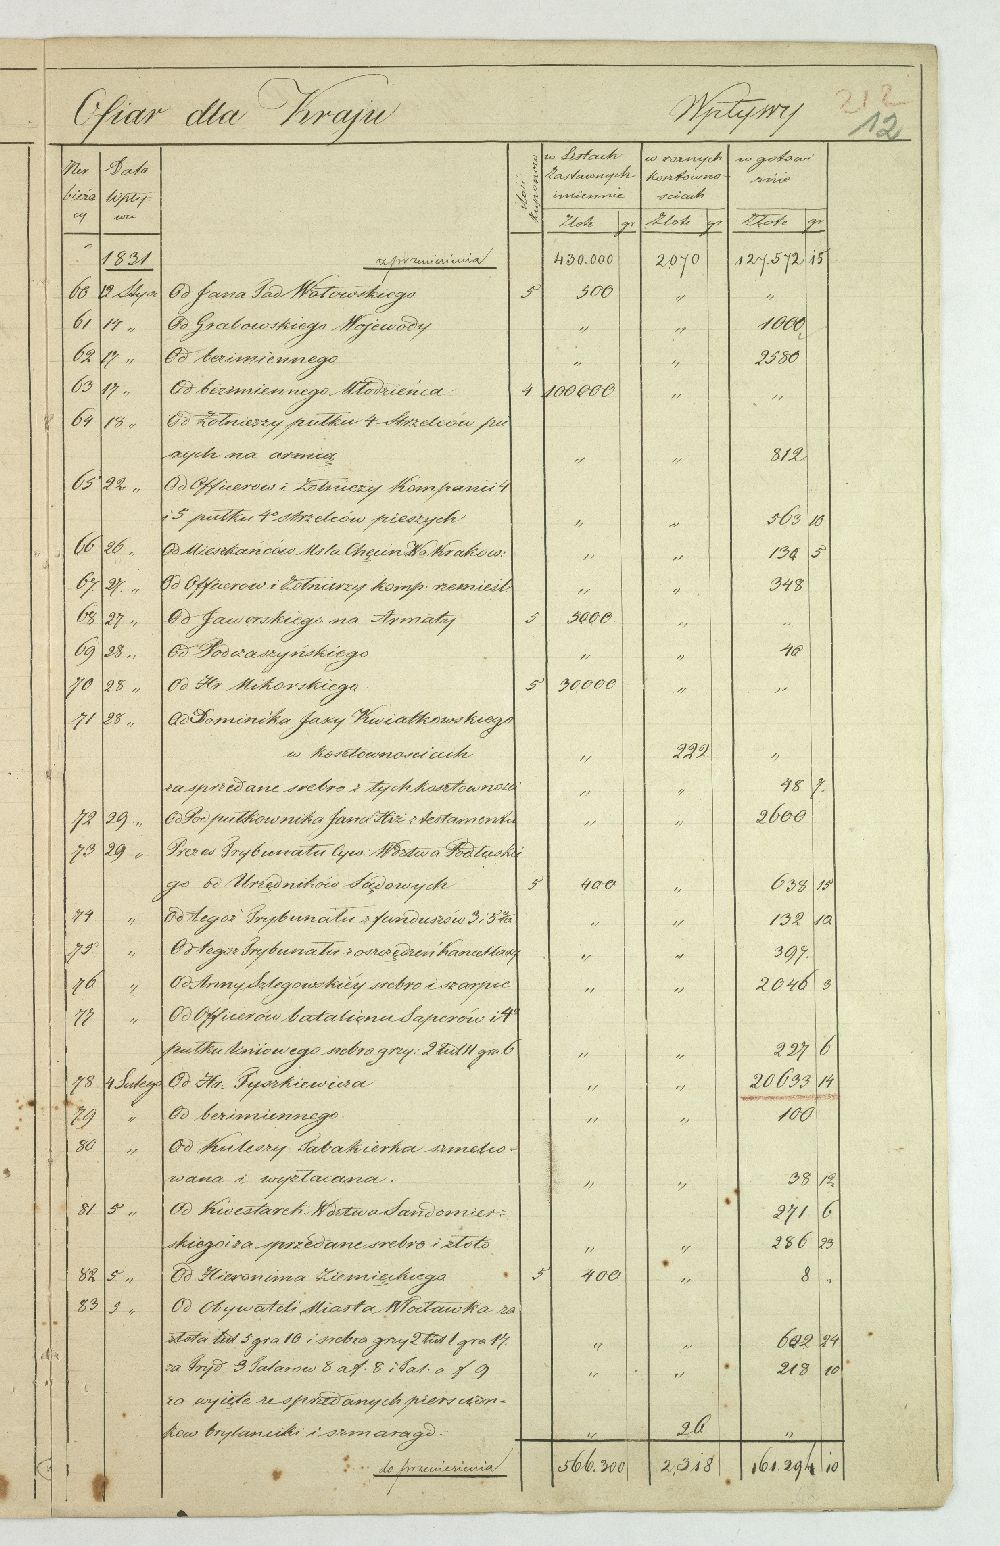 Ofiar dla Kraju Wpływy 212
12
Ner bieżący Data Wpływu Ilość kuponow w Listach Zastawnych imiennie w roznych kosztownosciach w gotowiznie
Złote gr Złote gr Złote gr
1831 z przeniesienia 430.000 2070 127.572 15
60 12 Stycz Od Jana Pad Wołowskiego 5 500 " "
61 17 " Od Grabowskiego Wojewody " " 1000
62 17 " Od bezimiennego " " 2580
63 17 " Od bezimiennego Młodzieńca 4 100000 " "
64 18 " Od Żołnierzy pułku 4 Strzelców pie
szych na armią " " 812
65 22 " Od Officerow i Żołnierzy Kompanii 4
i 5 pułku 4o strzelców pieszych " " 563 10
66 26 " Od Mieszkańców Msta Chęcin Wa Krakow: " " 134 5
67 27 " Od Officerow i Żołnierzy komp. rzemieśl: " " 348
68 27 " Od Jaworskiego na Armaty 5 5000 " "
69 28 " Od Podczaszyńskiego " " 40
70 28 " Od Hr. Mikorskiego 5 30000 " "
71 28 " Od Dominika Jaxy Kwiatkowskiego
w kosztownosciach " 222 "
za sprzedane srebro z tych kosztownosci " " 48 7
72 29 " Od Podpułkownika Jana Hiż z testamentu " " 2600
73 29 " Prezes Trybunału Cyw: Wdztwa Podlaskie
go od Urzędników Sądowych 5 400 " 638 15
74 " Od tegoż Trybunału z funduszów 3 i 5 " " 132 10
75 " Od tegoż Trybunału z oszczędzeń Kancellaryi " " 397
76 " Od Anny Szlegowskiéy srebro i szarpie " " 2046 3
77 " Od Officerów batalionu Saperów i 4o
pułku liniowego srebro grzy: 2 łut 11 gra 6 " " 227 6
78 4 Lutego Od Hr. Tyszkiewicza " " 20633 14
79 " Od bezimiennego " " 100
80 " Od Kuleszy Tabakierka szmelco-
wana i wyzłacana. " " 38 12
81 5 " Od Kwestarek Wdztwa Sandomier-
271 6
skiego i za sprzedane srebro i złoto " " 286 23
82 5 " Od Hieronima Ziemięckiego 5 400 " 8 "
83 5 " Od Obywateli Miasta Włocławka za
złota łut 5 gra 10 i srebra grzy 2 łut 1 gra 17. " " 622 24
za Fryd. 3 Talarow 8 a f. 8 i Tal. a f 9 " " 218 10
za wyięte ze sprzedanych pierscion-
kow brylanciki i szmaragd. " 26 "
do przeniesienia 566.300 2,318 161.294 10